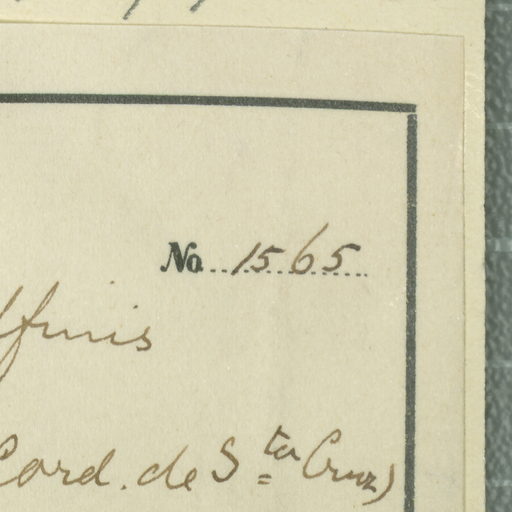 No. 1565
ffinis
Cord. de Sta Cruz)